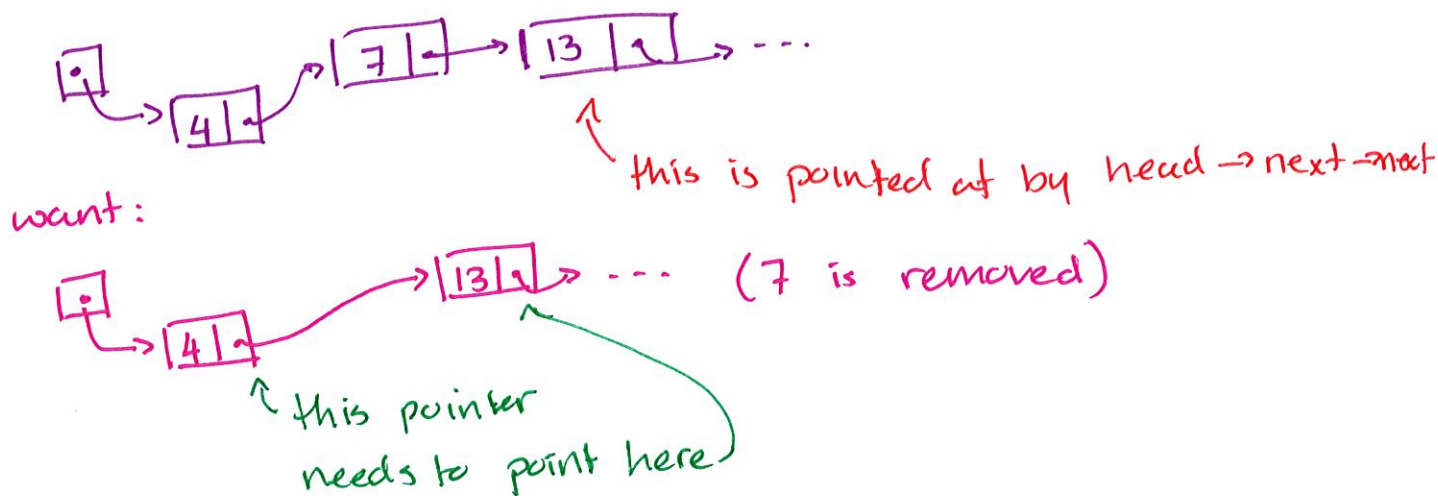 4 7 13 ...
this is pointed at by head → next → next
want:
4 13 ... (7 is removed)
this pointer
needs to point here